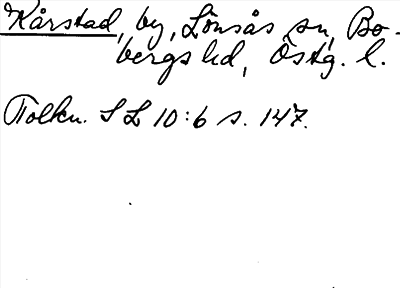 Kårstad, by, Lönsås sn, Bo-
bergs hd, Östg. l.
Tolkn. S L 10:6 s. 147.